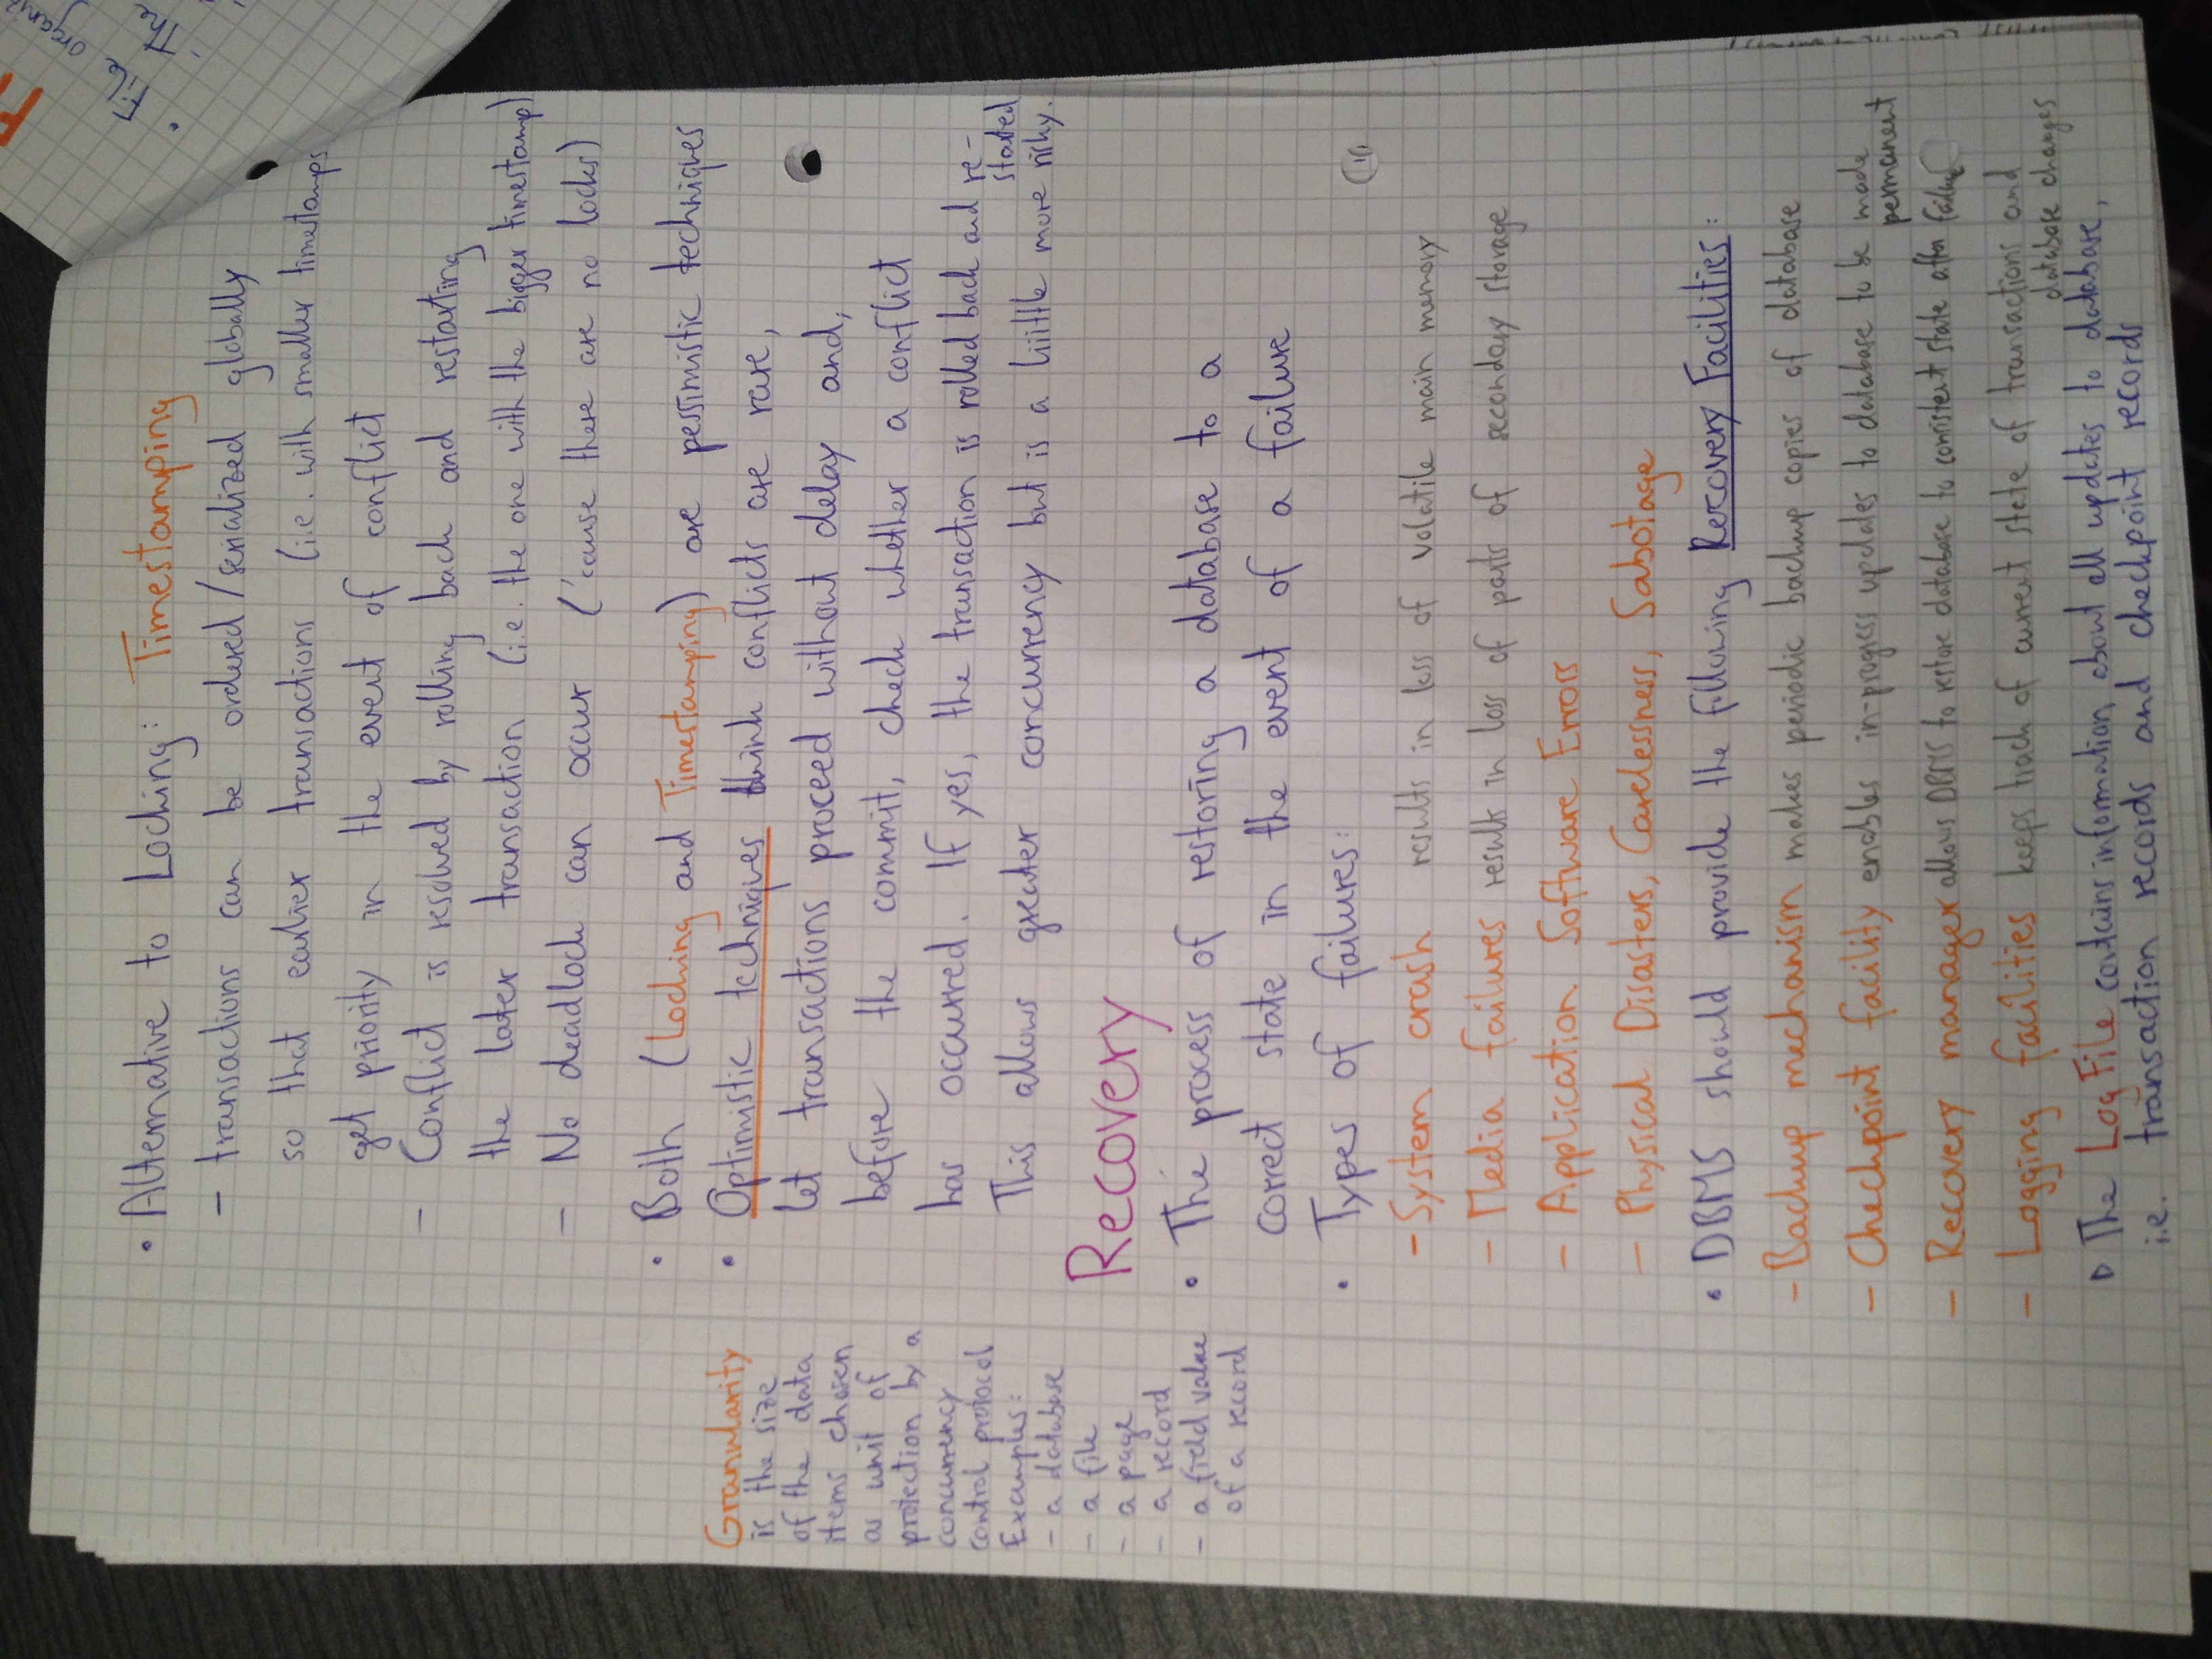 • Alternative to Locking: Timestamping
- transactions can be ordered/serialized globally
so that earlier transactions (i.e. with smaller timestamps
get priority in the event of conflict
- Conflict is resolved by rolling back and restarting
the later transaction (i.e. the one with the bigger timestamp)
- No deadlock can occur ('cause there are no locks)
• Both (Locking and Timestamping) are pessimistic techniques
• Optimistic techniques think conflicts are rare,
let transactions proceed without delay and,
before the commit, check whether a conflict
has occurred. If yes, the transaction is rolled back and re-
started
This allows greater concurrency but is a liiittle more risky.
Granularity
is the size
of the data
items chosen
as unit of
protection by a
concurrency
control protocol
Examples:
- a database
- a file
- a page
- a record
- a field value
of a record
Recovery
• The process of restoring a database to a
correct state in the event of a failure
• Types of failures:
- System crash results in loss of volatile main memory
- Media failures results in loss of parts of secondary storage
- Application Software Errors
- Physical Disasters, Carelessness, Sabotage
• DBMS should provide the following Recovery Facilities:
- Backup mechanism makes periodic backup copies of database
- Checkpoint facility enables in-progress updates to database to be made
permanent
- Recovery manager allows DBMS to restore database to consistent state after failure
- Logging facilities keeps track of current state of transactions and
database changes
▷ The Log File contains information about all updates to database,
i.e. transaction records and checkpoint records
• File
- The